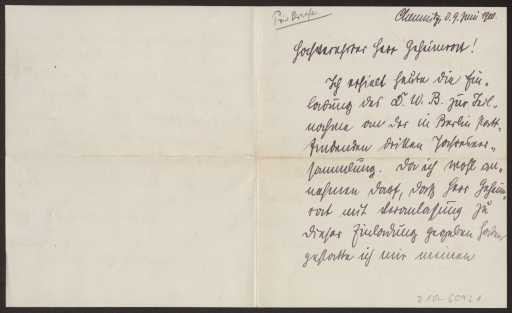 Chemnitz, d. 9. Juni 1910.
Hochverehrter Herr Geheimrat!
Ich erhielt heute die Ein-
ladung des D. W. B. zur Teil-
nahme an der in Berlin statt-
findenden dritten Jahresver-
sammlung. Da ich wohl an-
nehmen darf, daß Herr Geheim-
rat mit Veranlassung zu
dieser Einladung gegeben haben,
gestatte ich mir meinen